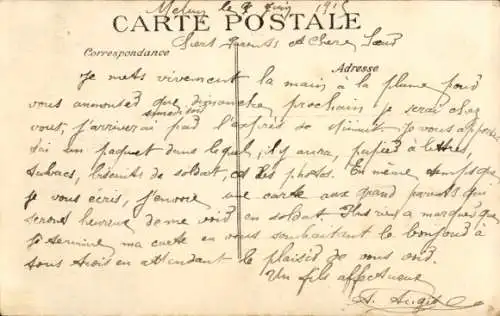 Melun le 9 Juin 1915
CARTE POSTALE
Correspondance
Chers Parents et Chère Sœur
Adresse
Je mets vivement la main à la plume pour
vous annoncer que dimanche prochain je serai chez
samedi soir
vous, j'arriverai par l'exprès de minuit. Je vous apporterai
ici un paquet dans lequel, il y aura, papier à lettres,
tabacs, biscuits de soldat, et des photos. En même temps que
je vous écris, j'envoie une carte aux grand parents qui
seront heureux de me voir en soldat
je termine ma carte en vous souhaitant le bonjour à
tous trois en attendant le plaisir de vous voir.
Un fils affectueux